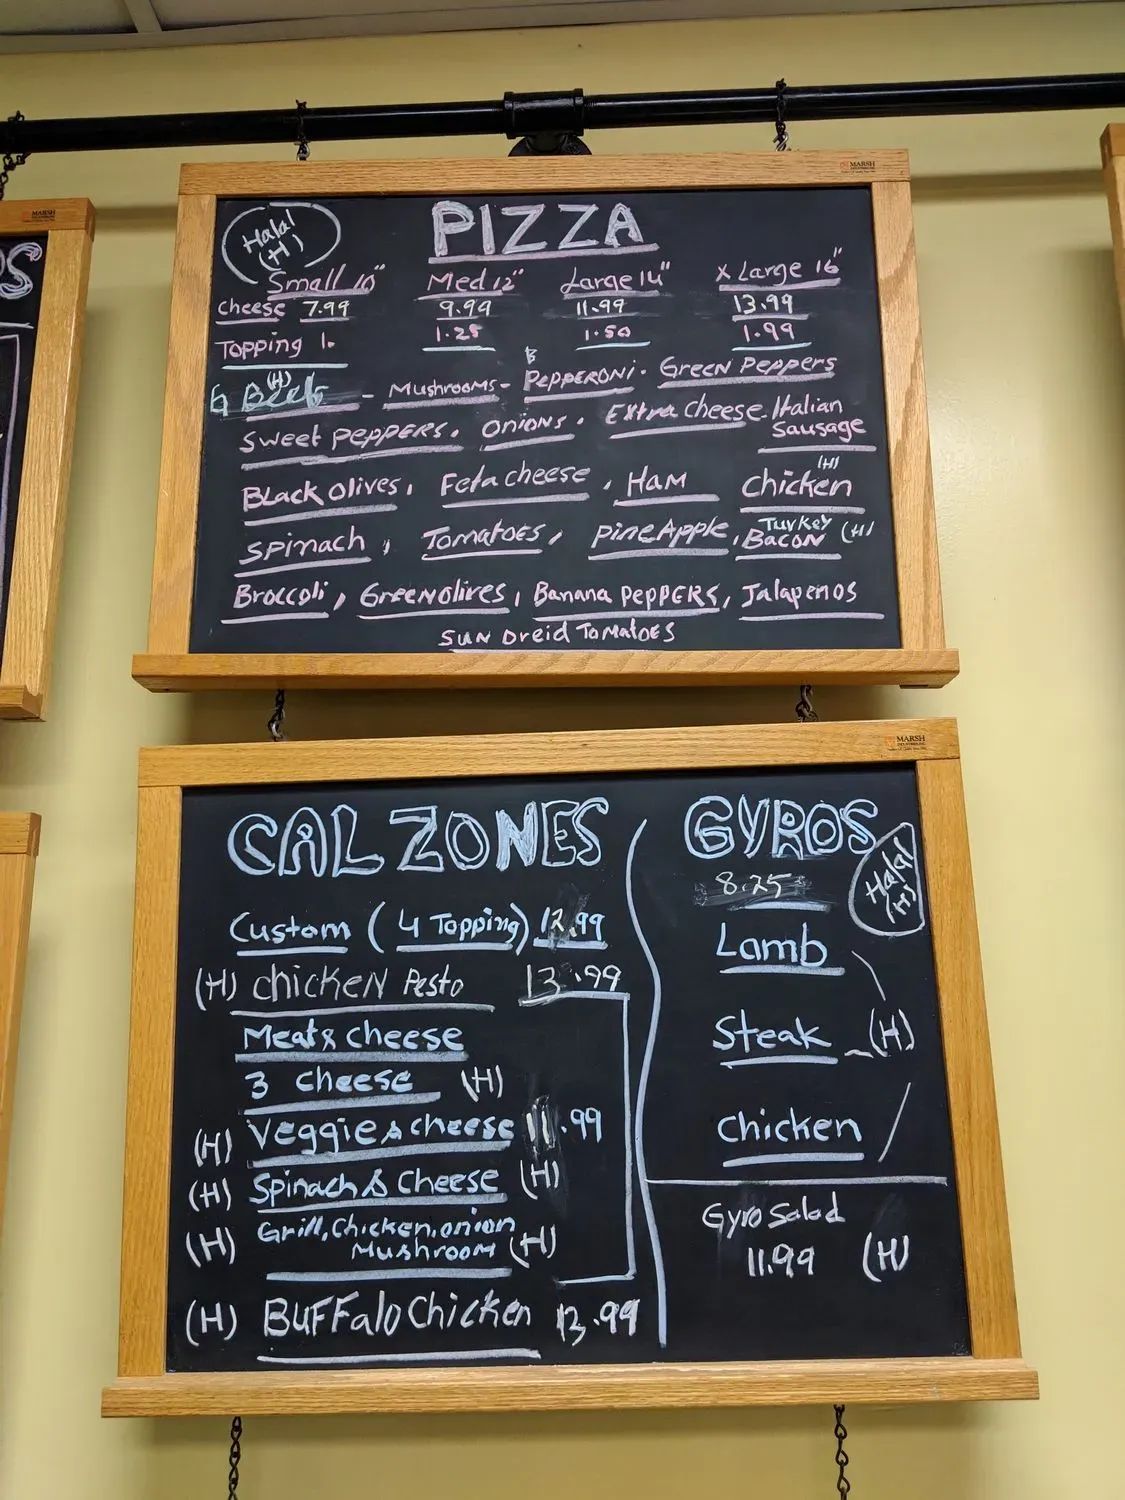 MARSH
Halal
(H)
PIZZA
Small 10" Med 12" Large 14" x Large 16"
Cheese 7.99 9.99 11.99 13.99
Topping 1. 1.25 1.50 1.99
Beef (H) - Mushrooms - Pepperoni. Green Peppers
Sweet Peppers. Onions. Extra Cheese. Italian Sausage
Black Olives, Feta cheese, Ham Chicken (H)
Spinach, Tomatoes, PineApple, Turkey Bacon (H)
Broccoli, Green olives, Banana Peppers, Jalapenos
Sun Dreid Tomatoes
MARSH
MARSH
CALZONES
Custom (4 Topping) 12.99
(H) Chicken Pesto 13.99
Meat & Cheese
3 Cheese (H)
(H) Veggie & cheese 11.99
(H) Spinach & Cheese (H)
(H) Grill, Chicken, onion
Mushroom (H)
(H) Buffalo Chicken 13.99
GYROS
Halal
(H)
8.25
Lamb
Steak (H)
Chicken
Gyro Salad
11.99 (H)